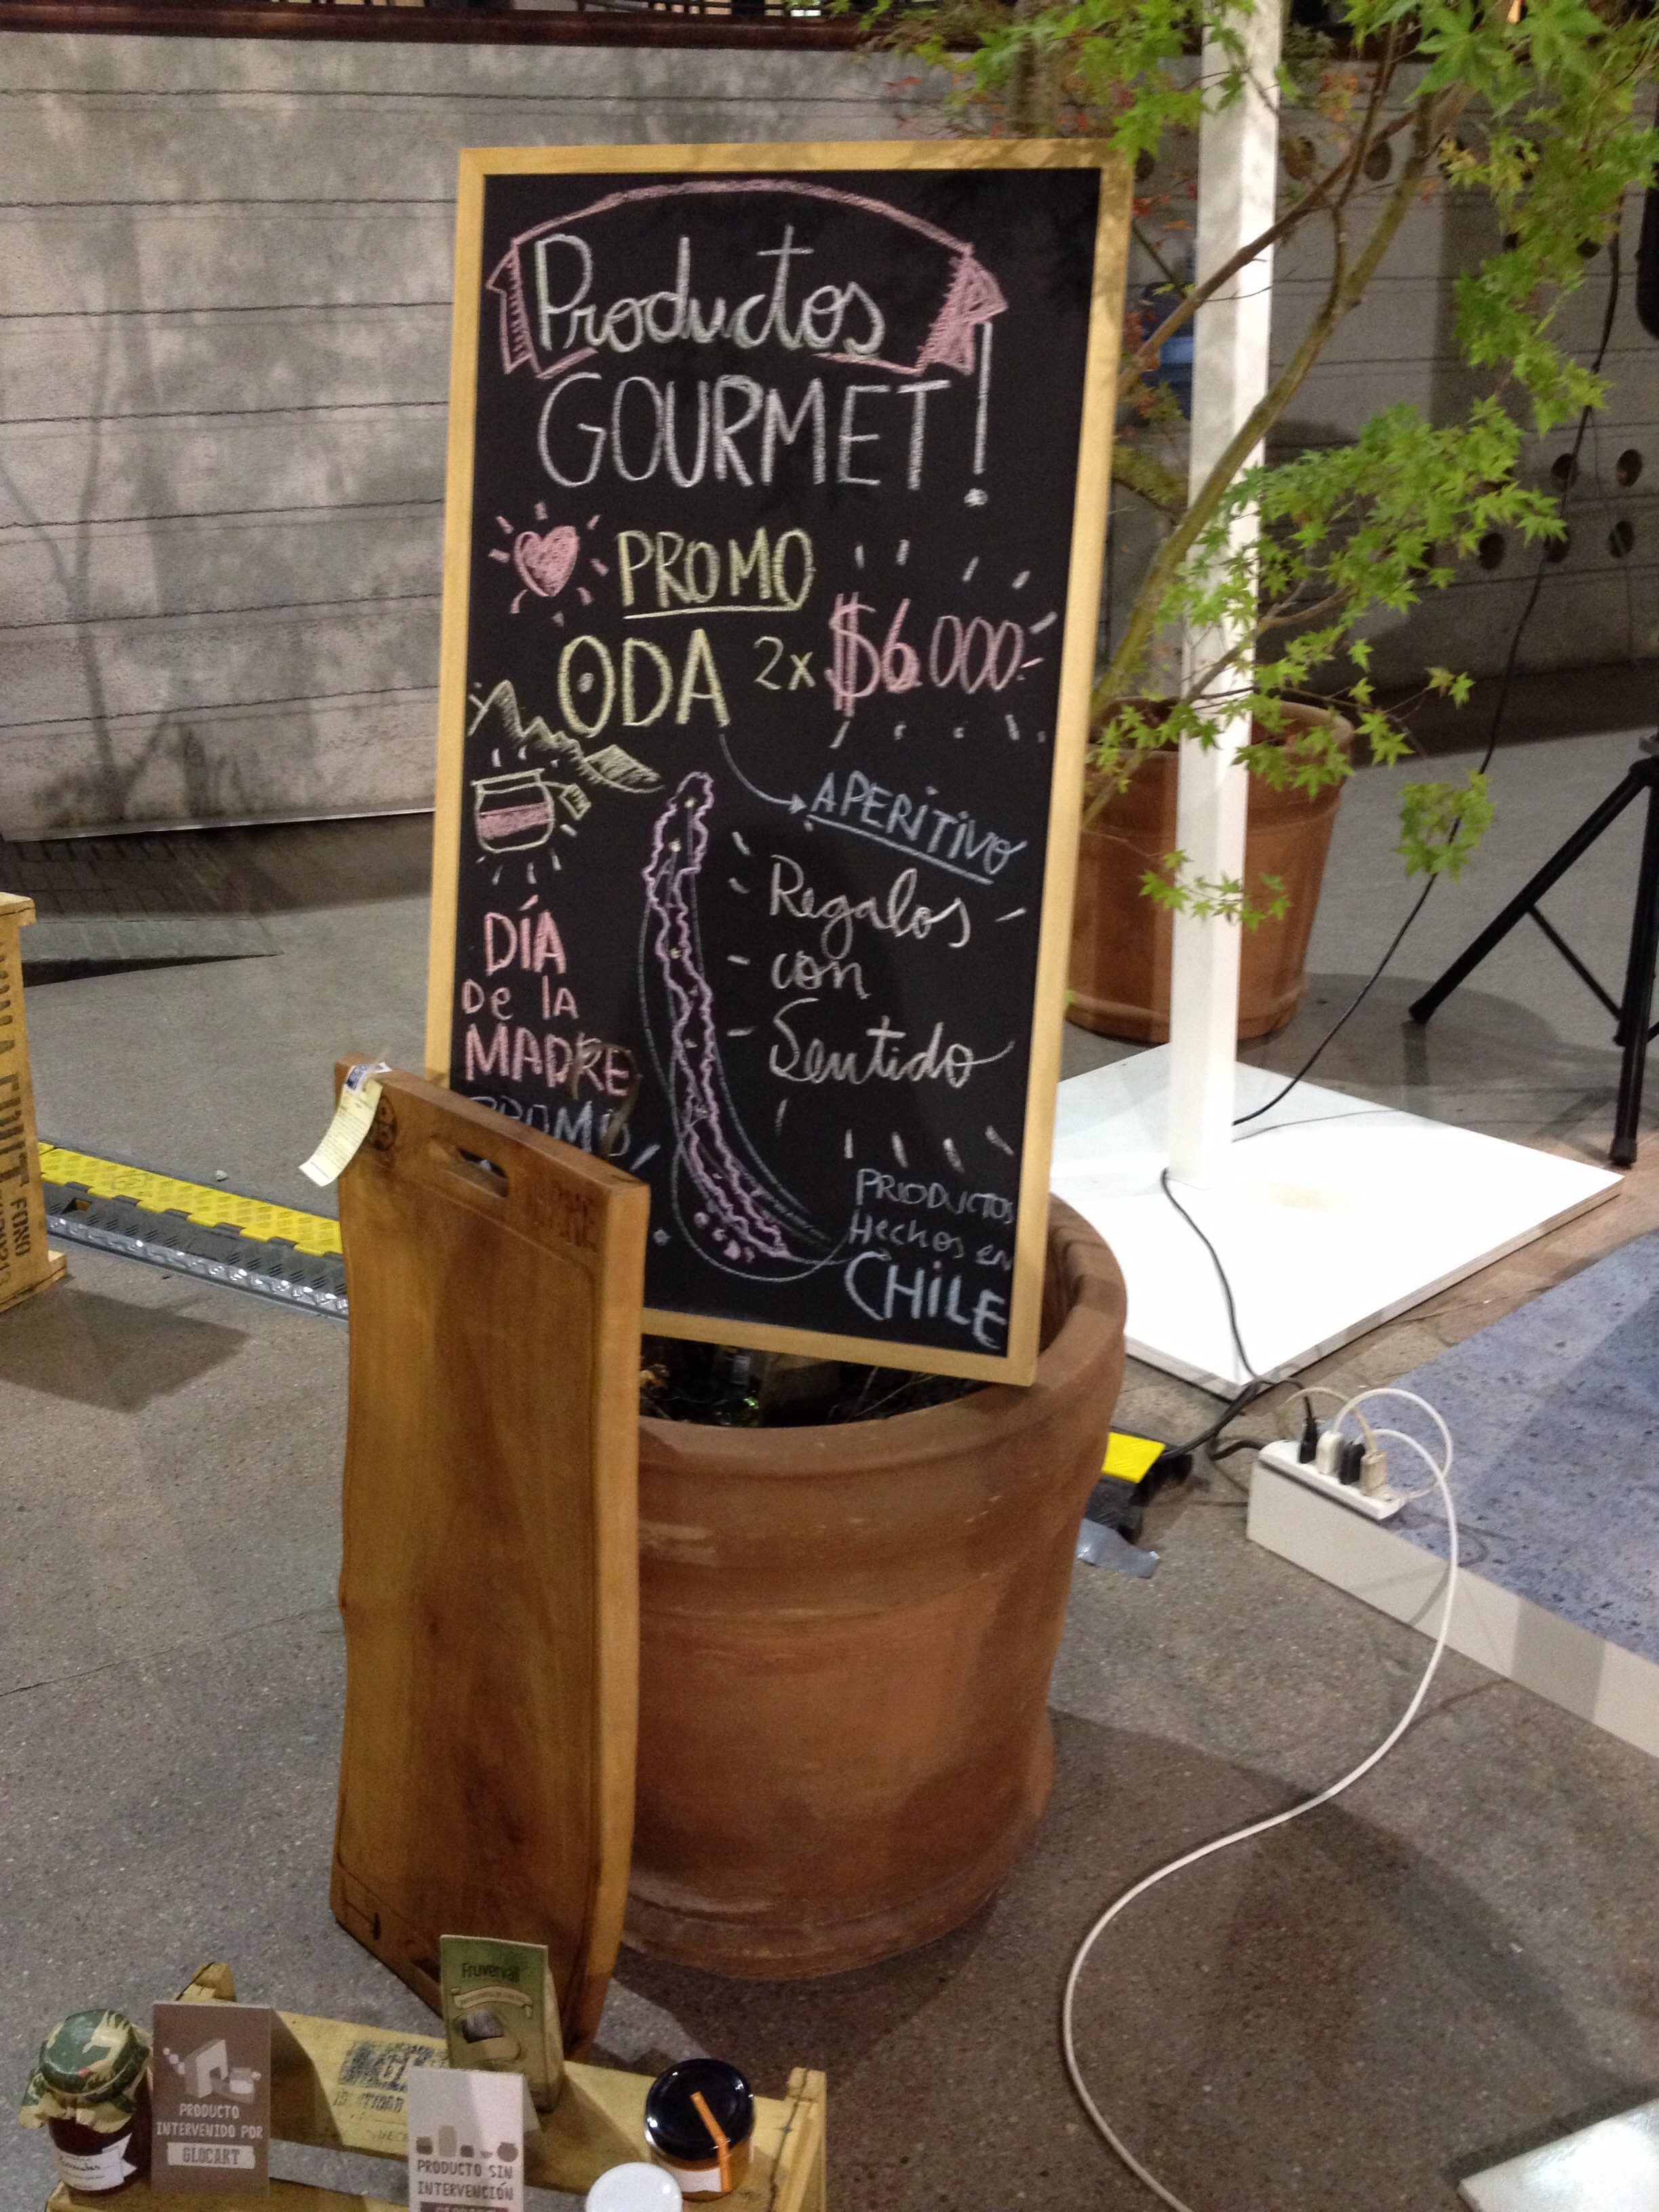 Productos
GOURMET!
PROMO
ODA 2x $6.000
APERITIVO
Regalos
con
Sentido
DÍA
De la
MADRE
PROMO
PRODUCTOS
Hechos en
CHILE
FONO
Fruverall
PRODUCTO
INTERVENIDO POR
GLOCART
PRODUCTO SIN
INTERVENCIÓN